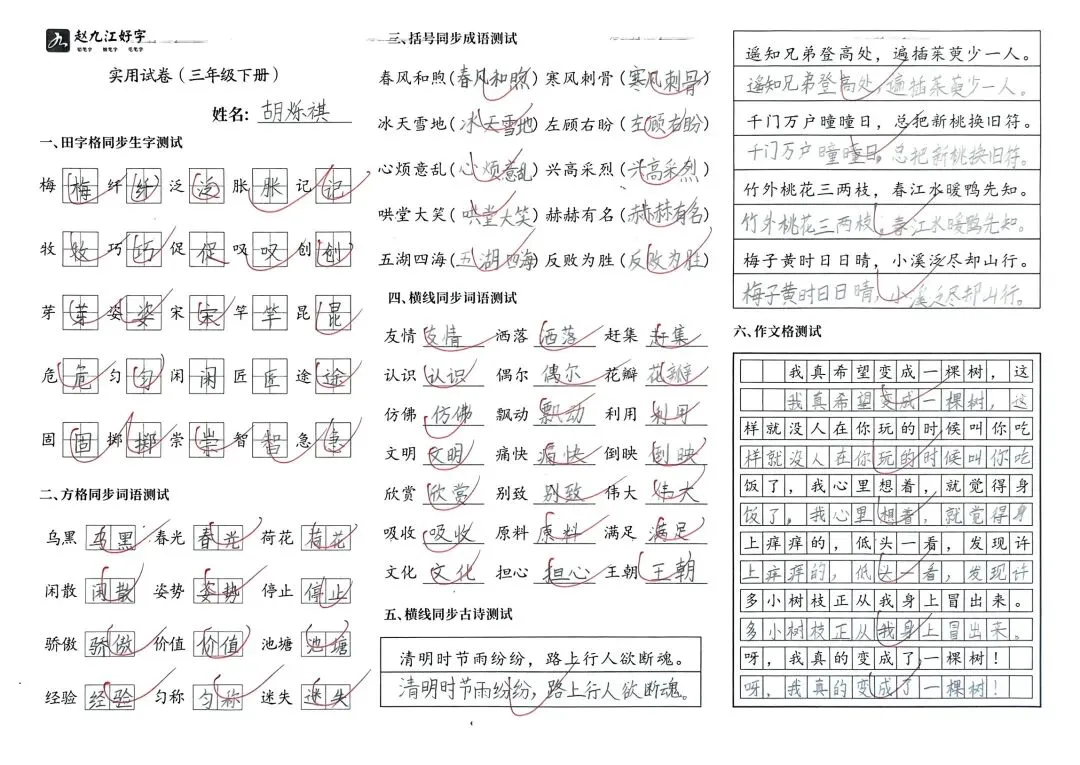 赵九江好字
铅笔字 钢笔字 毛笔字
实用试卷（三年级下册）
姓名：胡烁祺
一、田字格同步生字测试
梅 梅 纤 纤 泛 泛 胀 胀 记 记
牧 牧 巧 巧 促 促 叹 叹 创 创
芽 芽 姿 姿 宋 宋 竿 竿 昆 昆
危 危 匀 匀 闲 闲 匠 匠 途 途
固 固 掷 掷 崇 崇 智 智 急 急
二、方格同步词语测试
乌黑 乌黑 春光 春光 荷花 荷花
闲散 闲散 姿势 姿势 停止 停止
骄傲 骄傲 价值 价值 池塘 池塘
经验 经验 匀称 匀称 迷失 迷失
三、括号同步成语测试
春风和煦(春风和煦) 寒风刺骨(寒风刺骨)
冰天雪地(冰天雪地) 左顾右盼(左顾右盼)
心烦意乱(心烦意乱) 兴高采烈(兴高采烈)
哄堂大笑(哄堂大笑) 赫赫有名(赫赫有名)
五湖四海(五湖四海) 反败为胜(反败为胜)
四、横线同步词语测试
友情 友情 洒落 洒落 赶集 赶集
认识 认识 偶尔 偶尔 花瓣 花瓣
仿佛 仿佛 飘动 飘动 利用 利用
文明 文明 痛快 痛快 倒映 倒映
欣赏 欣赏 别致 别致 伟大 伟大
吸收 吸收 原料 原料 满足 满足
文化 文化 担心 担心 王朝 王朝
五、横线同步古诗测试
清明时节雨纷纷，路上行人欲断魂。
清明时节雨纷纷，路上行人欲断魂。
遥知兄弟登高处，遍插茱萸少一人。
遥知兄弟登高处，遍插茱萸少一人。
千门万户曈曈日，总把新桃换旧符。
千门万户曈曈日，总把新桃换旧符。
竹外桃花三两枝，春江水暖鸭先知。
竹外桃花三两枝，春江水暖鸭先知。
梅子黄时日日晴，小溪泛尽却山行。
梅子黄时日日晴，小溪泛尽却山行。
六、作文格测试
我真希望变成一棵树，这
我真希望变成一棵树，这
样就没人在你玩的时候叫你吃
样就没人在你玩的时候叫你吃
饭了，我心里想着，就觉得身
饭了，我心里想着，就觉得身
上痒痒的，低头一看，发现许
上痒痒的，低头一看，发现许
多小树枝正从我身上冒出来。
多小树枝正从我身上冒出来。
呀，我真的变成了一棵树！
呀，我真的变成了一棵树！